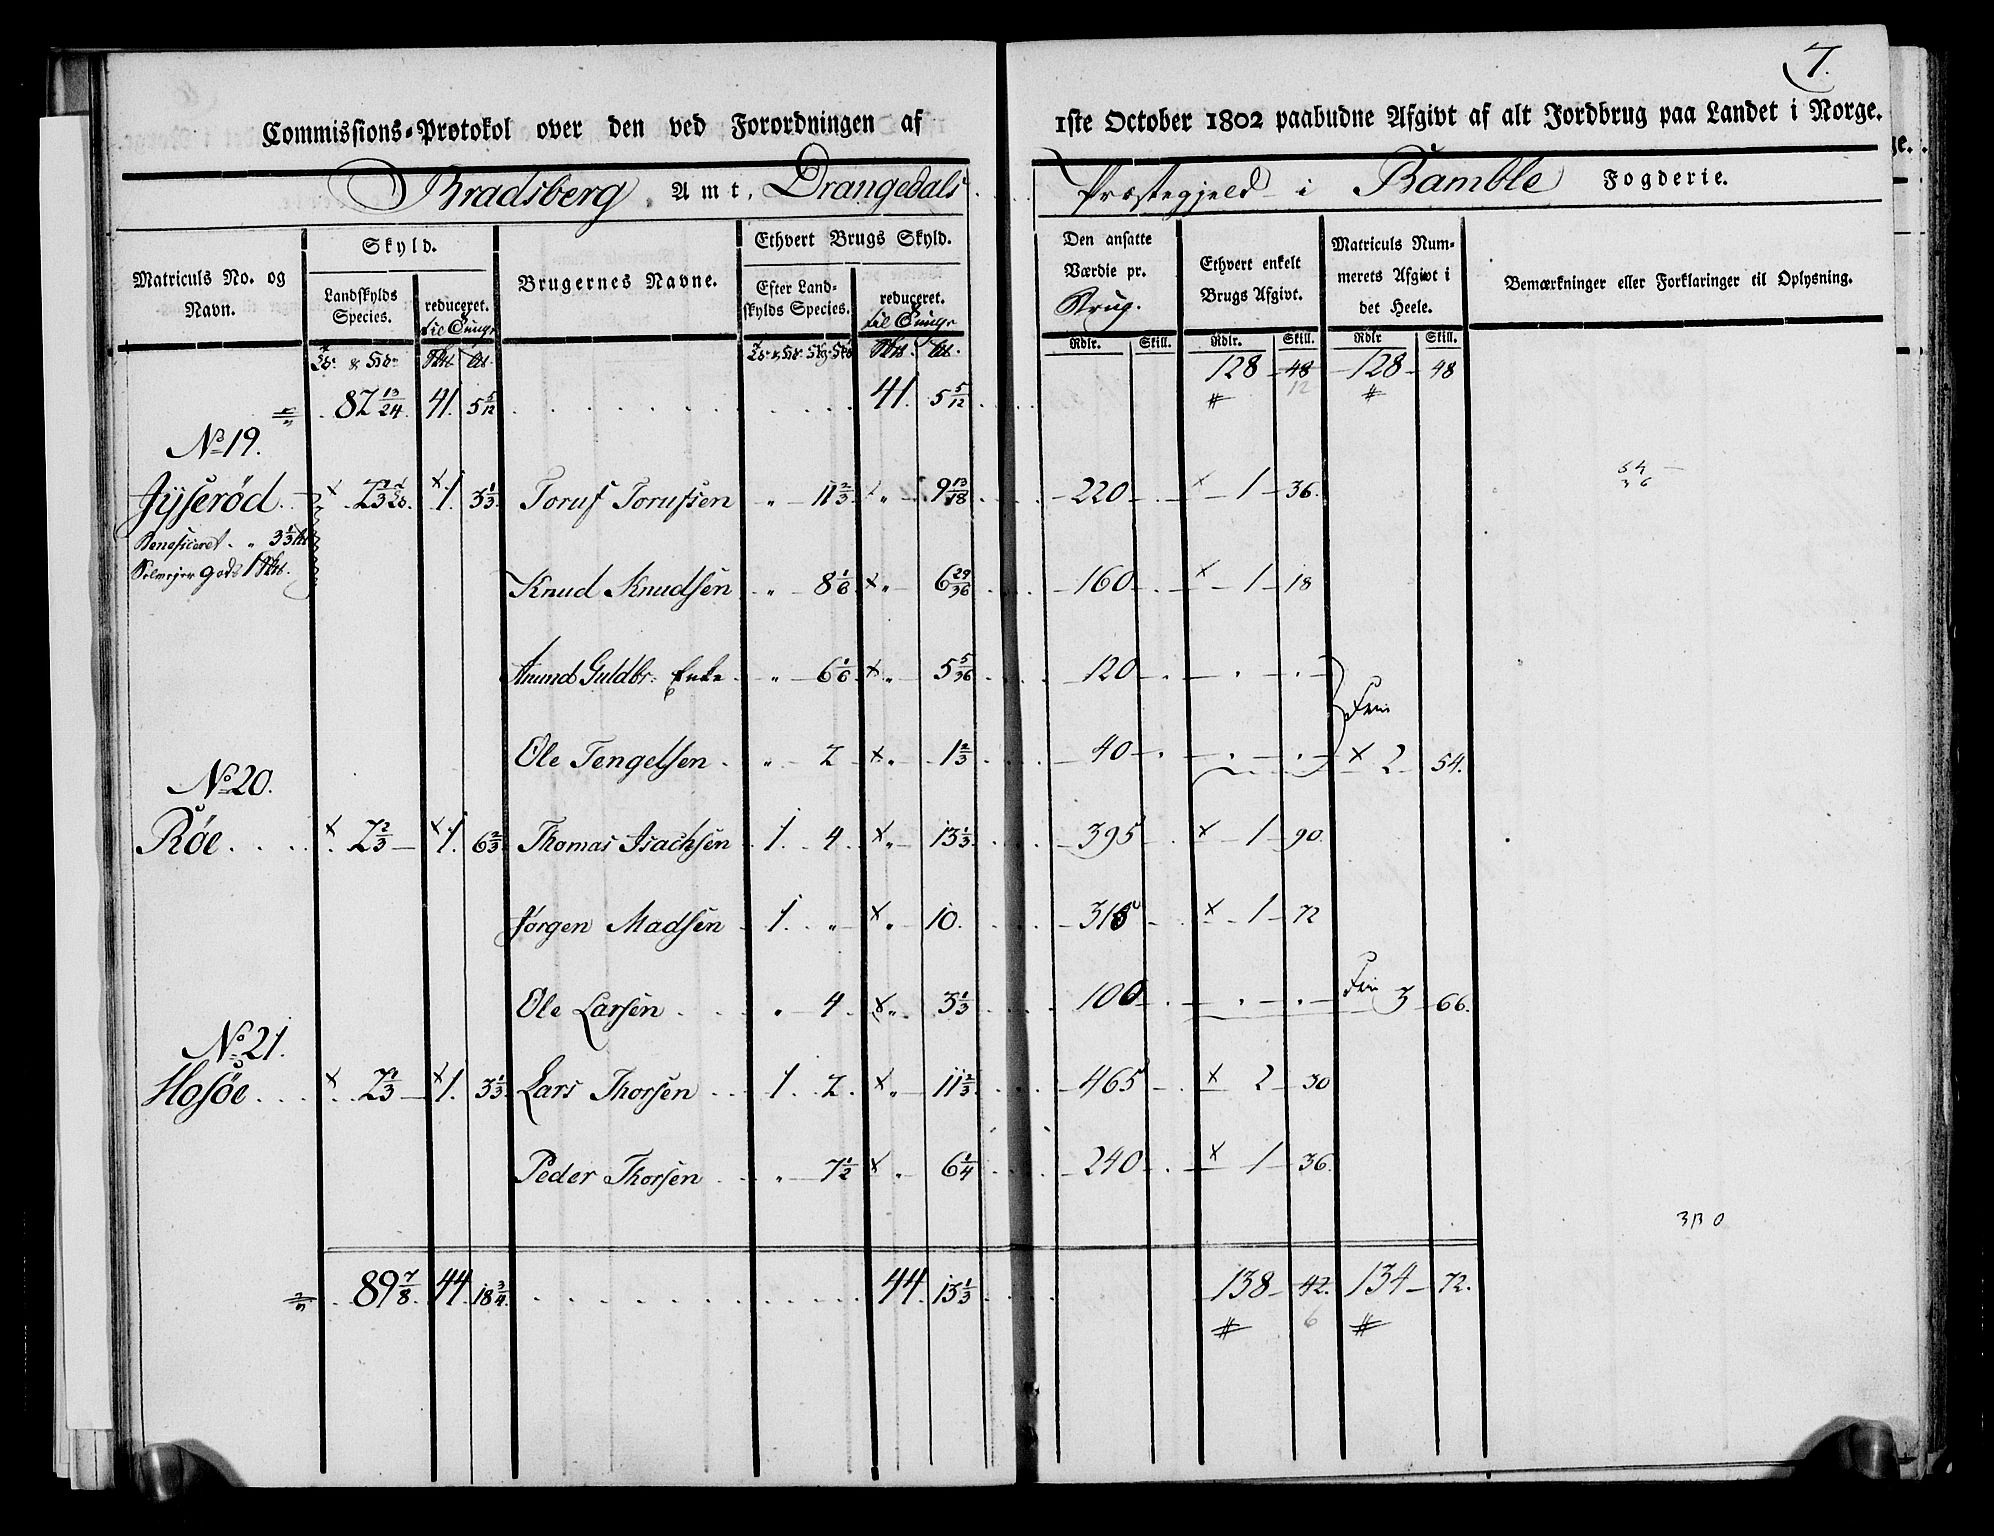 7.
Commissions-Protokol over den ved Forordningen af 1ste October 1802 paabudne Afgivt af alt Jordbrug paa Landet i Norge.
Bradsberg Amt, Drangedals Præstegjeld i Bamble Fogderie.
Matriculs No. og Navn.
Skyld.
Landskylds Species.
reduceret. til Tunge
Brugernes Navne.
Ethvert Brugs Skyld.
Efter Landskylds Species.
reduceret. til Tunge
Den ansatte Værdie pr. Brug.
Ethvert enkelt Brugs Afgivt.
Matriculs Nummerets Afgivt i det Heele.
Bemærkninger eller Forklaringer til Oplysning.
Rdlr. Skill. Rdlr. Skill. Rdlr Skill.
128 48 128 48
12
87 13/24 41. 5 5/12 41. 5 5/12 # #
No 19.
Jyserød 2 1/3 1. 3 1/3 Toruf Torufsen " 11 2/3 " 9 13/18 220 1 36.
Beneficeret " 3 1/3
Selvejer Gods 1
Knud Knudsen " 8 1/6 " 6 29/36 160 1 18
Amund Guldbr: Enke " 6 1/6 " 5 5/36 120
Frie
Ole Tengelsen " 2 " 1 2/3 40 2 54.
No 20.
Røe 2 2/3 1. 6 2/3 Thomas Isachsen 1. 4. " 13 1/3 395 1 90.
Jørgen Madsen 1. " " 10. 315 1 72
Ole Larsen " 4. " 3 1/3 100 Frie 3 66.
No 21.
Hosøe 2 1/3 1. 3 1/3 Lars Thorsen 1. 2. " 11 2/3 465 2 30
Peder Thorsen " 7 1/2 " 6 1/4 240 1 36.
89 7/8 44. 18 3/4 44. 13 1/3 138 42. 134 72.
# 6 #